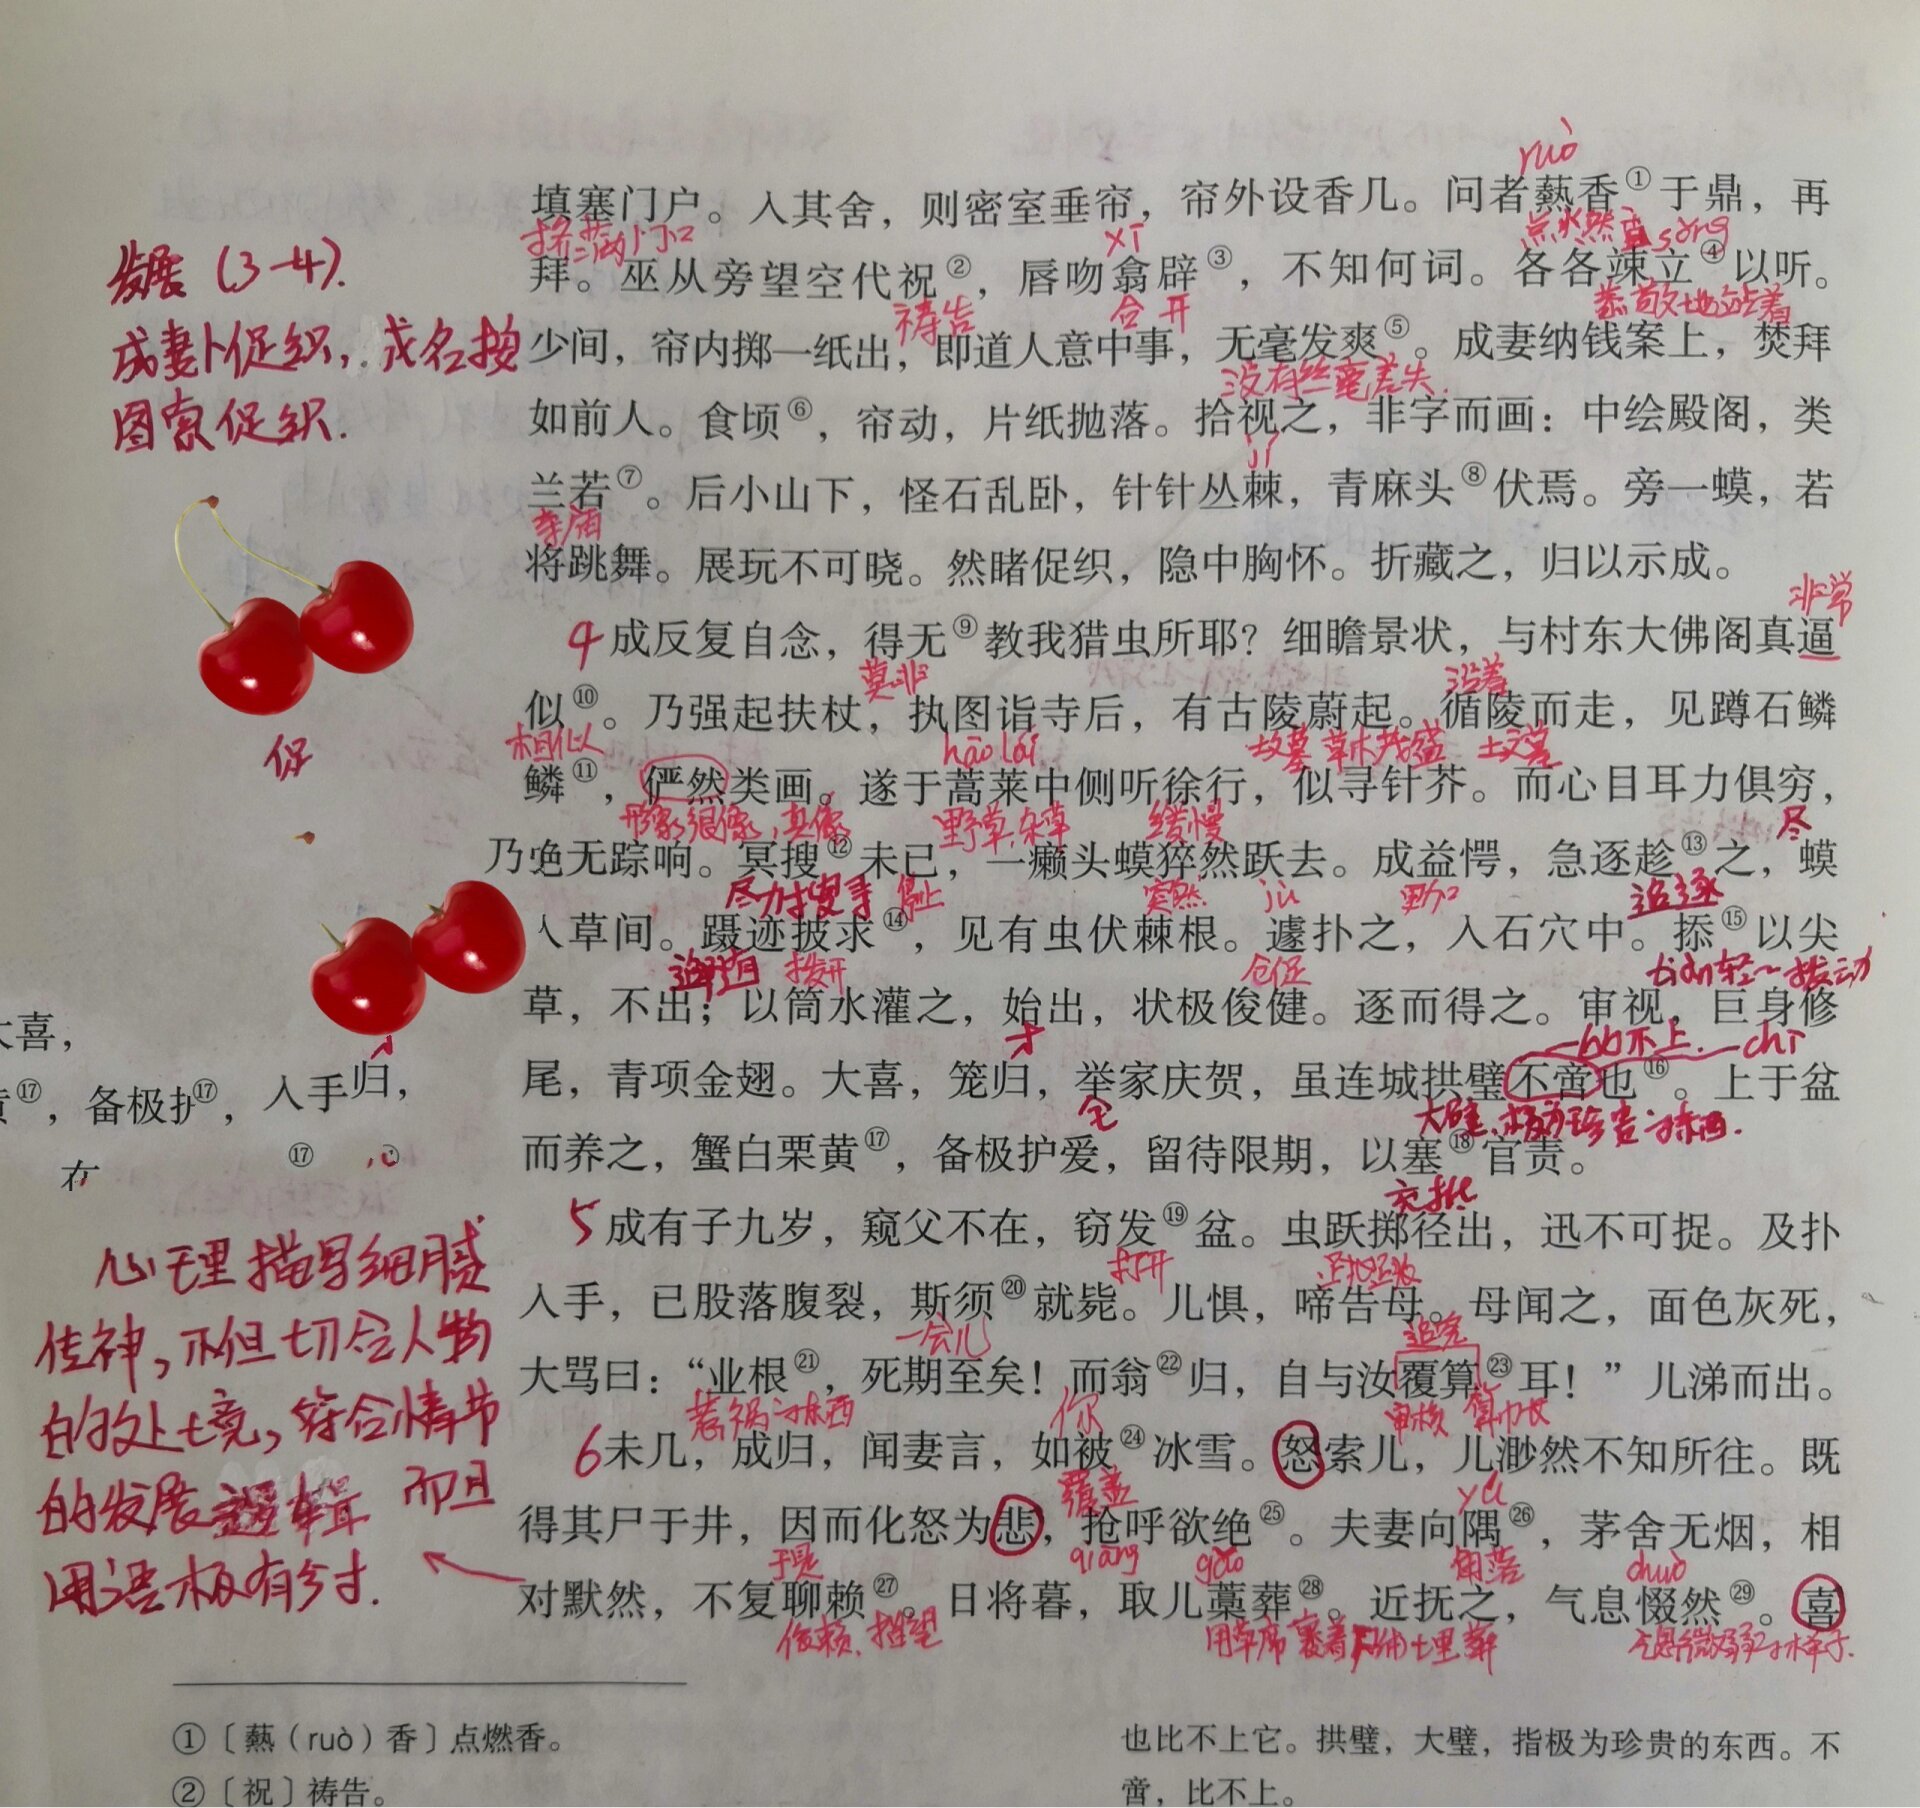 ruò
填塞门户。入其舍，则密室垂帘，帘外设香几。问者爇香①于鼎，再
挤满 门口
xī
点火然香 sǒng
发展（3-4）.
拜。巫从旁望空代祝②，唇吻翕辟③，不知何词。各各竦立④以听。
祷告
合 开
恭敬地站着
成妻卜促织，成名按
图索促织.
少间，帘内掷一纸出，即道人意中事，无毫发爽⑤。成妻纳钱案上，焚拜
没有丝毫差失.
如前人。食顷⑥，帘动，片纸抛落。拾视之，非字而画：中绘殿阁，类
jí
兰若⑦。后小山下，怪石乱卧，针针丛棘，青麻头⑧伏焉。旁一蟆，若
寺庙
将跳舞。展玩不可晓。然睹促织，隐中胸怀。折藏之，归以示成。
非常
4 成反复自念，得无⑨教我猎虫所耶？细瞻景状，与村东大佛阁真逼
莫非
沿着
似⑩。乃强起扶杖，执图诣寺后，有古陵蔚起。循陵而走，见蹲石鳞
相似
hāo lái
故墓 草木茂盛 土堂
促
鳞⑪，俨然类画。遂于蒿莱中侧听徐行，似寻针芥。而心目耳力俱穷，
形象很像，真像
野草，杂草
缓慢
尽
乃绝无踪响。冥搜⑫未已，一癞头蟆猝然跃去。成益愕，急逐趁⑬之，蟆
尽力搜寻 停止
突然
jù
更加
追逐
入草间。蹑迹披求⑭，见有虫伏棘根。遽扑之，入石穴中。掭⑮以尖
追踪 拨开
仓促
tiàn 轻轻拨动
草，不出；以筒水灌之，始出，状极俊健。逐而得之。审视，巨身修
才
比不上. chì
尾，青项金翅。大喜，笼归，举家庆贺，虽连城拱璧不啻也⑯。上于盆
全
大璧，极为珍贵的东西.
而养之，蟹白栗黄⑰，备极护爱，留待限期，以塞⑱官责。
充抵
大喜，
⑰，备极护⑰，入手归，
⑰
5 成有子九岁，窥父不在，窃发⑲盆。虫跃掷径出，迅不可捉。及扑
打开
入手，已股落腹裂，斯须⑳就毙。儿惧，啼告母。母闻之，面色灰死，
一会儿
追究
大骂曰：“业根㉑，死期至矣！而翁㉒归，自与汝覆算㉓耳！”儿涕而出。
惹祸的东西
你
审核 算账
6 未几，成归，闻妻言，如被㉔冰雪。怒索儿，儿渺然不知所往。既
覆盖
yú
得其尸于井，因而化怒为悲，抢呼欲绝㉕。夫妻向隅㉖，茅舍无烟，相
于是
qiāng
gǎo
角落
chuò
对默然，不复聊赖㉗。日将暮，取儿藁葬㉘。近抚之，气息惙然㉙。喜
依赖，指望
用草席裹着尸体土里葬
气息微弱的样子.
心理描写细腻
传神，不但切合人物
的处境，符合情节
的发展逻辑 而且
用语极有分寸.
①〔爇（ruò）香〕点燃香。
②〔祝〕祷告。
也比不上它。拱璧，大璧，指极为珍贵的东西。不
啻，比不上。